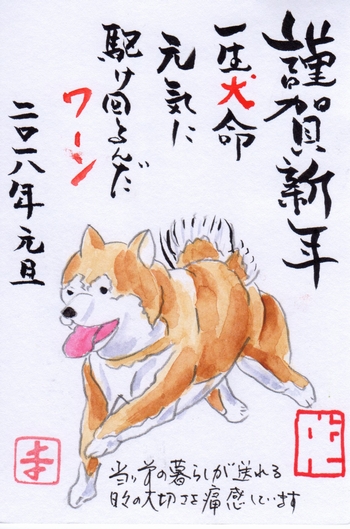 謹賀新年
一生犬命
元気に
駆け回るんだ
ワーン
二〇一八年元旦
当り前の暮らしが送れる
日々の大切さを痛感しています